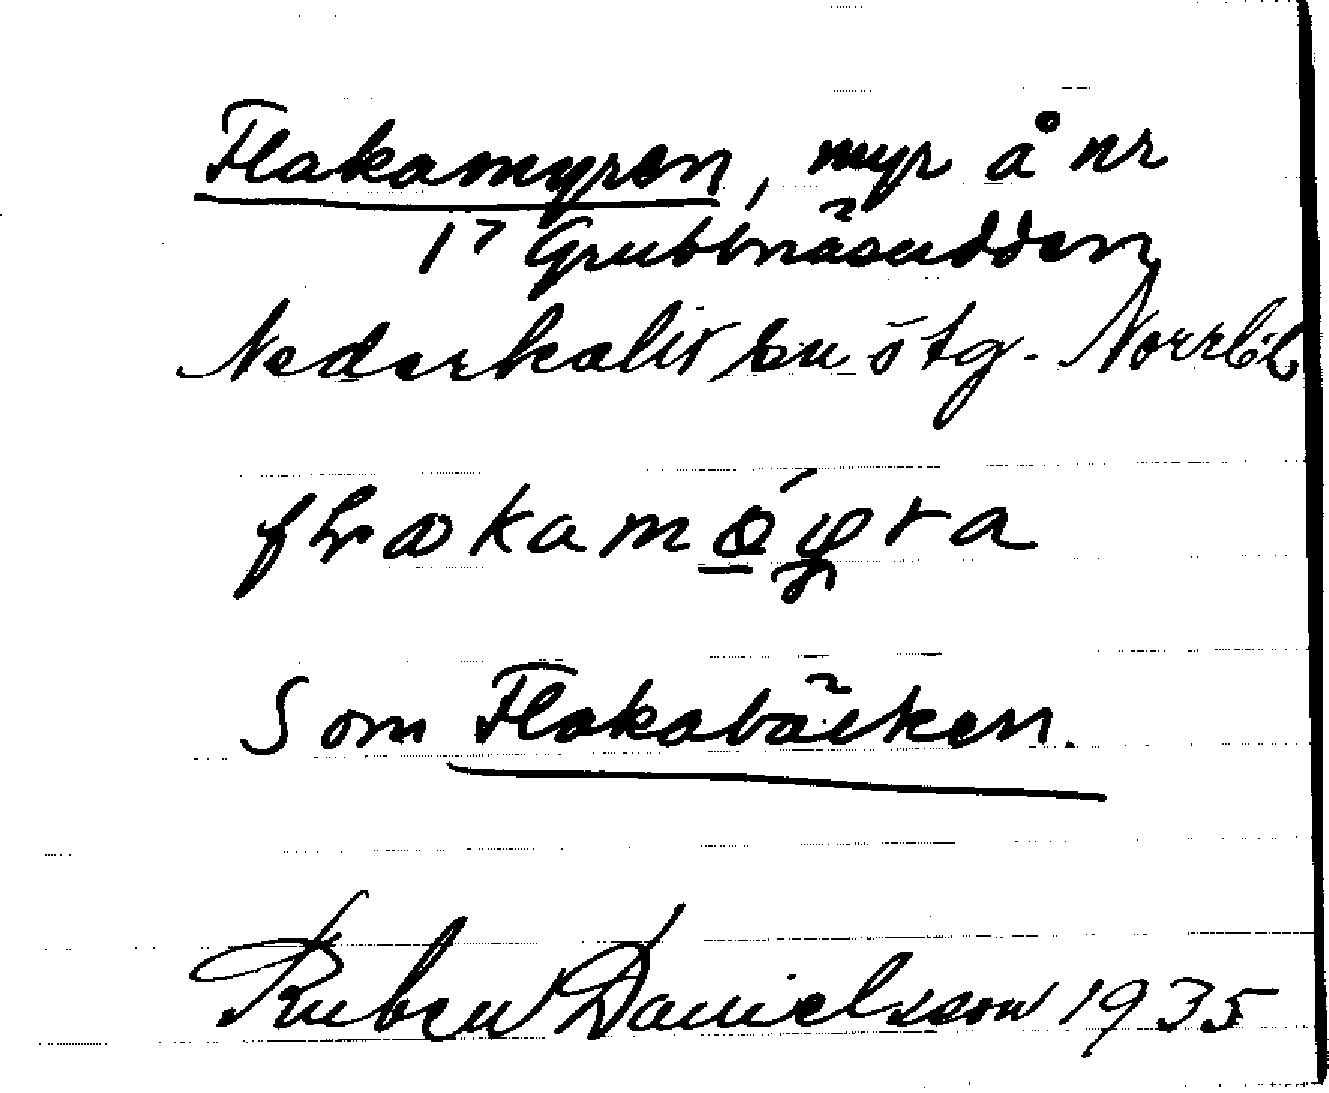 Flakamyren, myr å nr
17 Grubbnäsudden
Nederkalix sn ö tg. Norrb. l.
Som Flakabäcken.
Ruben Danielsson 1935